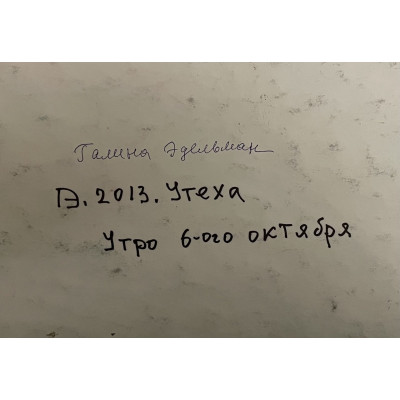 Галина Эдельман
ГЭ. 2013. Утеха
Утро 6-ого октября